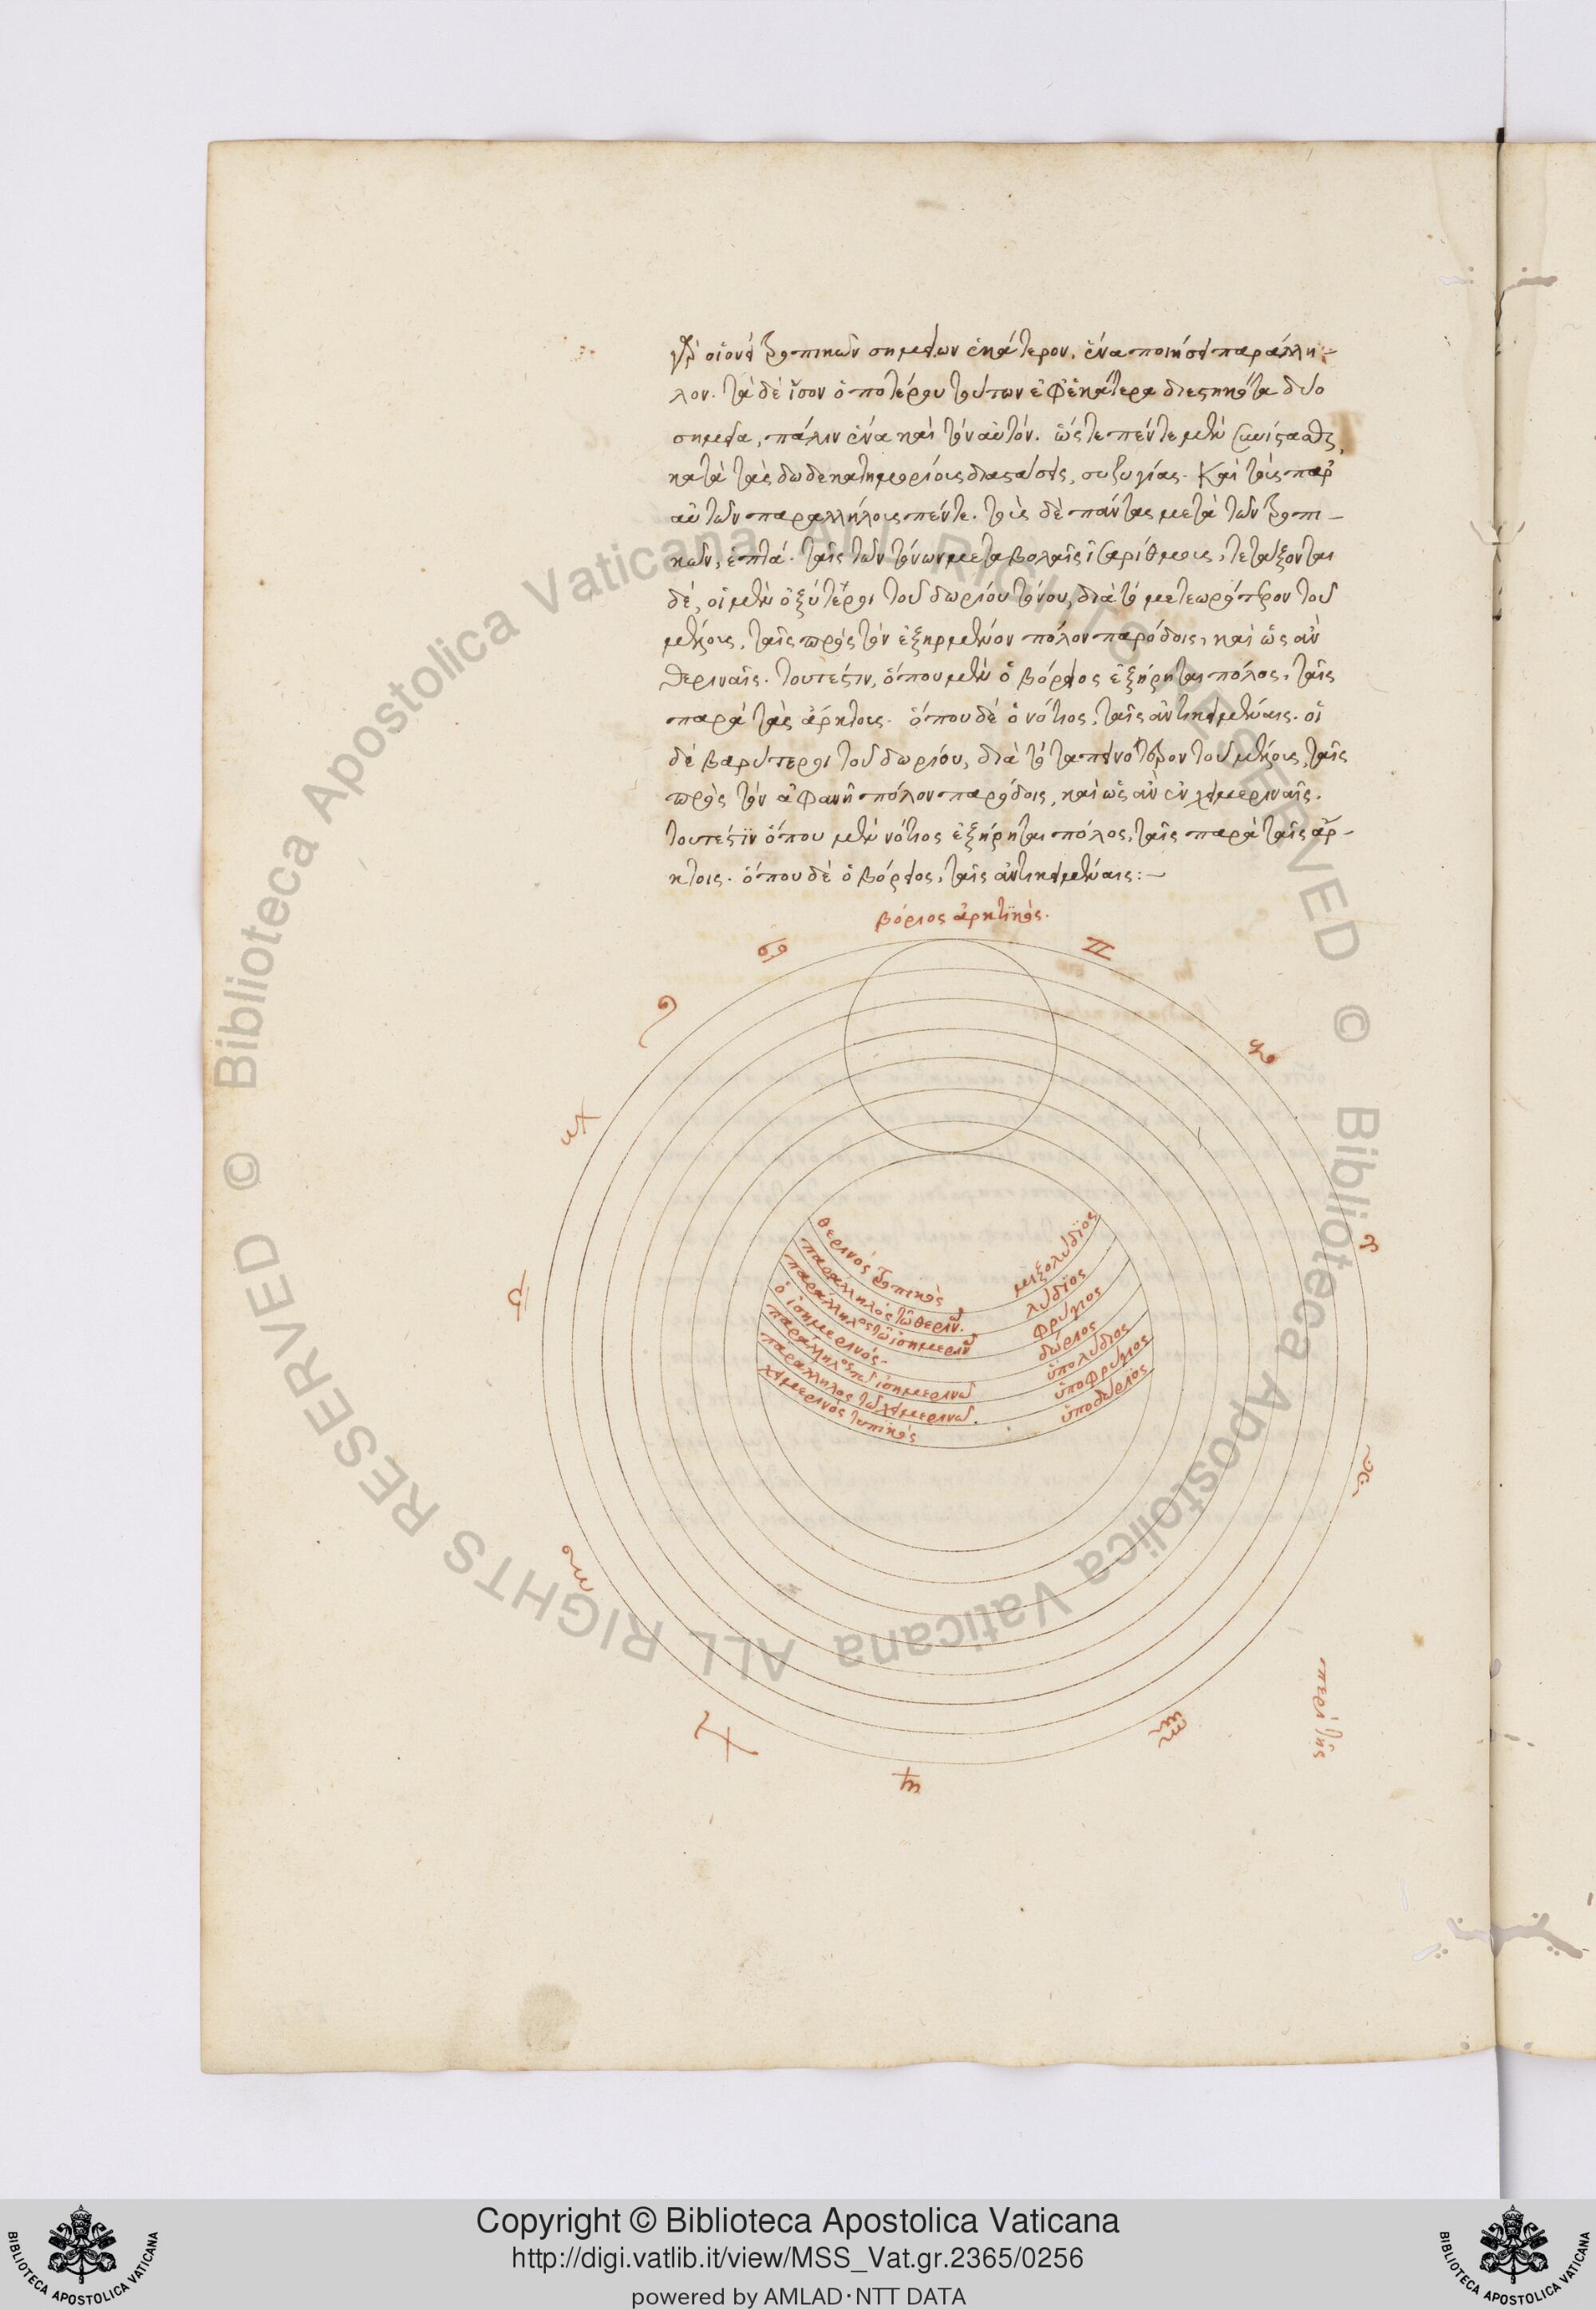 γὰρ οἱονεὶ τροπικῶν σημείων ἑκάτερον, ἕνα ποιήσει παράλλη-
λον. τὰ δὲ ἴσον ὁποτέρου τούτων ἐφ' ἑκάτερα διεστηκότα δύο
σημεῖα, πάλιν ἕνα καὶ τὸν αὐτόν. ὥστε πέντε μὲν συνίστασθαι,
κατὰ τὰς δωδεκατημορίους διαστάσεις, συζυγίας. καὶ τοὺς παρ'
αὐτῶν παραλλήλους πέντε. τοὺς δὲ πάντας μετὰ τῶν τροπι-
κῶν, ἑπτά. ταῖς τῶν τόνων μεταβολαῖς ἰσαρίθμους, τετάξονται
δέ, οἱ μὲν ὀξύτεροι τοῦ δωρίου τόνου, διὰ τὸ μετεωρότερον τοῦ
μέλους, ταῖς πρὸς τὸν ἐξηρμένον πόλον παρόδοις, καὶ ὡς ἂν
θεριναῖς. τουτέστιν, ὅπου μὲν ὁ βόρειος ἐξήρηται πόλος, ταῖς
παρὰ τὰς ἄρκτους. ὅπου δὲ ὁ νότιος, ταῖς ἀντικειμέναις. οἱ
δὲ βαρύτεροι τοῦ δωρίου, διὰ τὸ ταπεινότερον τοῦ μέλους, ταῖς
πρὸς τὸν ἀφανῆ πόλον παρόδοις, καὶ ὡς ἂν ἐν χειμεριναῖς.
τουτέστιν ὅπου μὲν νότιος ἐξήρηται πόλος, ταῖς παρὰ ταῖς ἄρ-
κτοις. ὅπου δὲ ὁ βόρειος, ταῖς ἀντικειμέναις:—
βόριος ἀρκτικός.
♋ ♊
♌ ♉
♍ ♈
♎ ♓
♏ ♒
♐ ♑
θερινὸς τροπικός μιξολύδιος
παράλληλος τῶ θερινῶ. λύδιος
παράλληλος τῶ ἰσημερινῶ φρύγιος
ὁ ἰσημερινός. δώριος
παράλληλος τοῦ ἰσημερινοῦ ὑπολύδιος
παράλληλος τοῦ χειμερινοῦ. ὑποφρύγιος
χειμερινὸς τροπικός ὑποδώριος
περὶ τῆς
Biblioteca Apostolica Vaticana ALL RIGHTS RESERVED ©
Biblioteca Apostolica Vaticana ALL RIGHTS RESERVED ©
Copyright © Biblioteca Apostolica Vaticana
http://digi.vatlib.it/view/MSS_Vat.gr.2365/0256
powered by AMLAD·NTT DATA
BIBLIOTECA APOSTOLICA VATICANA
BIBLIOTECA APOSTOLICA VATICANA